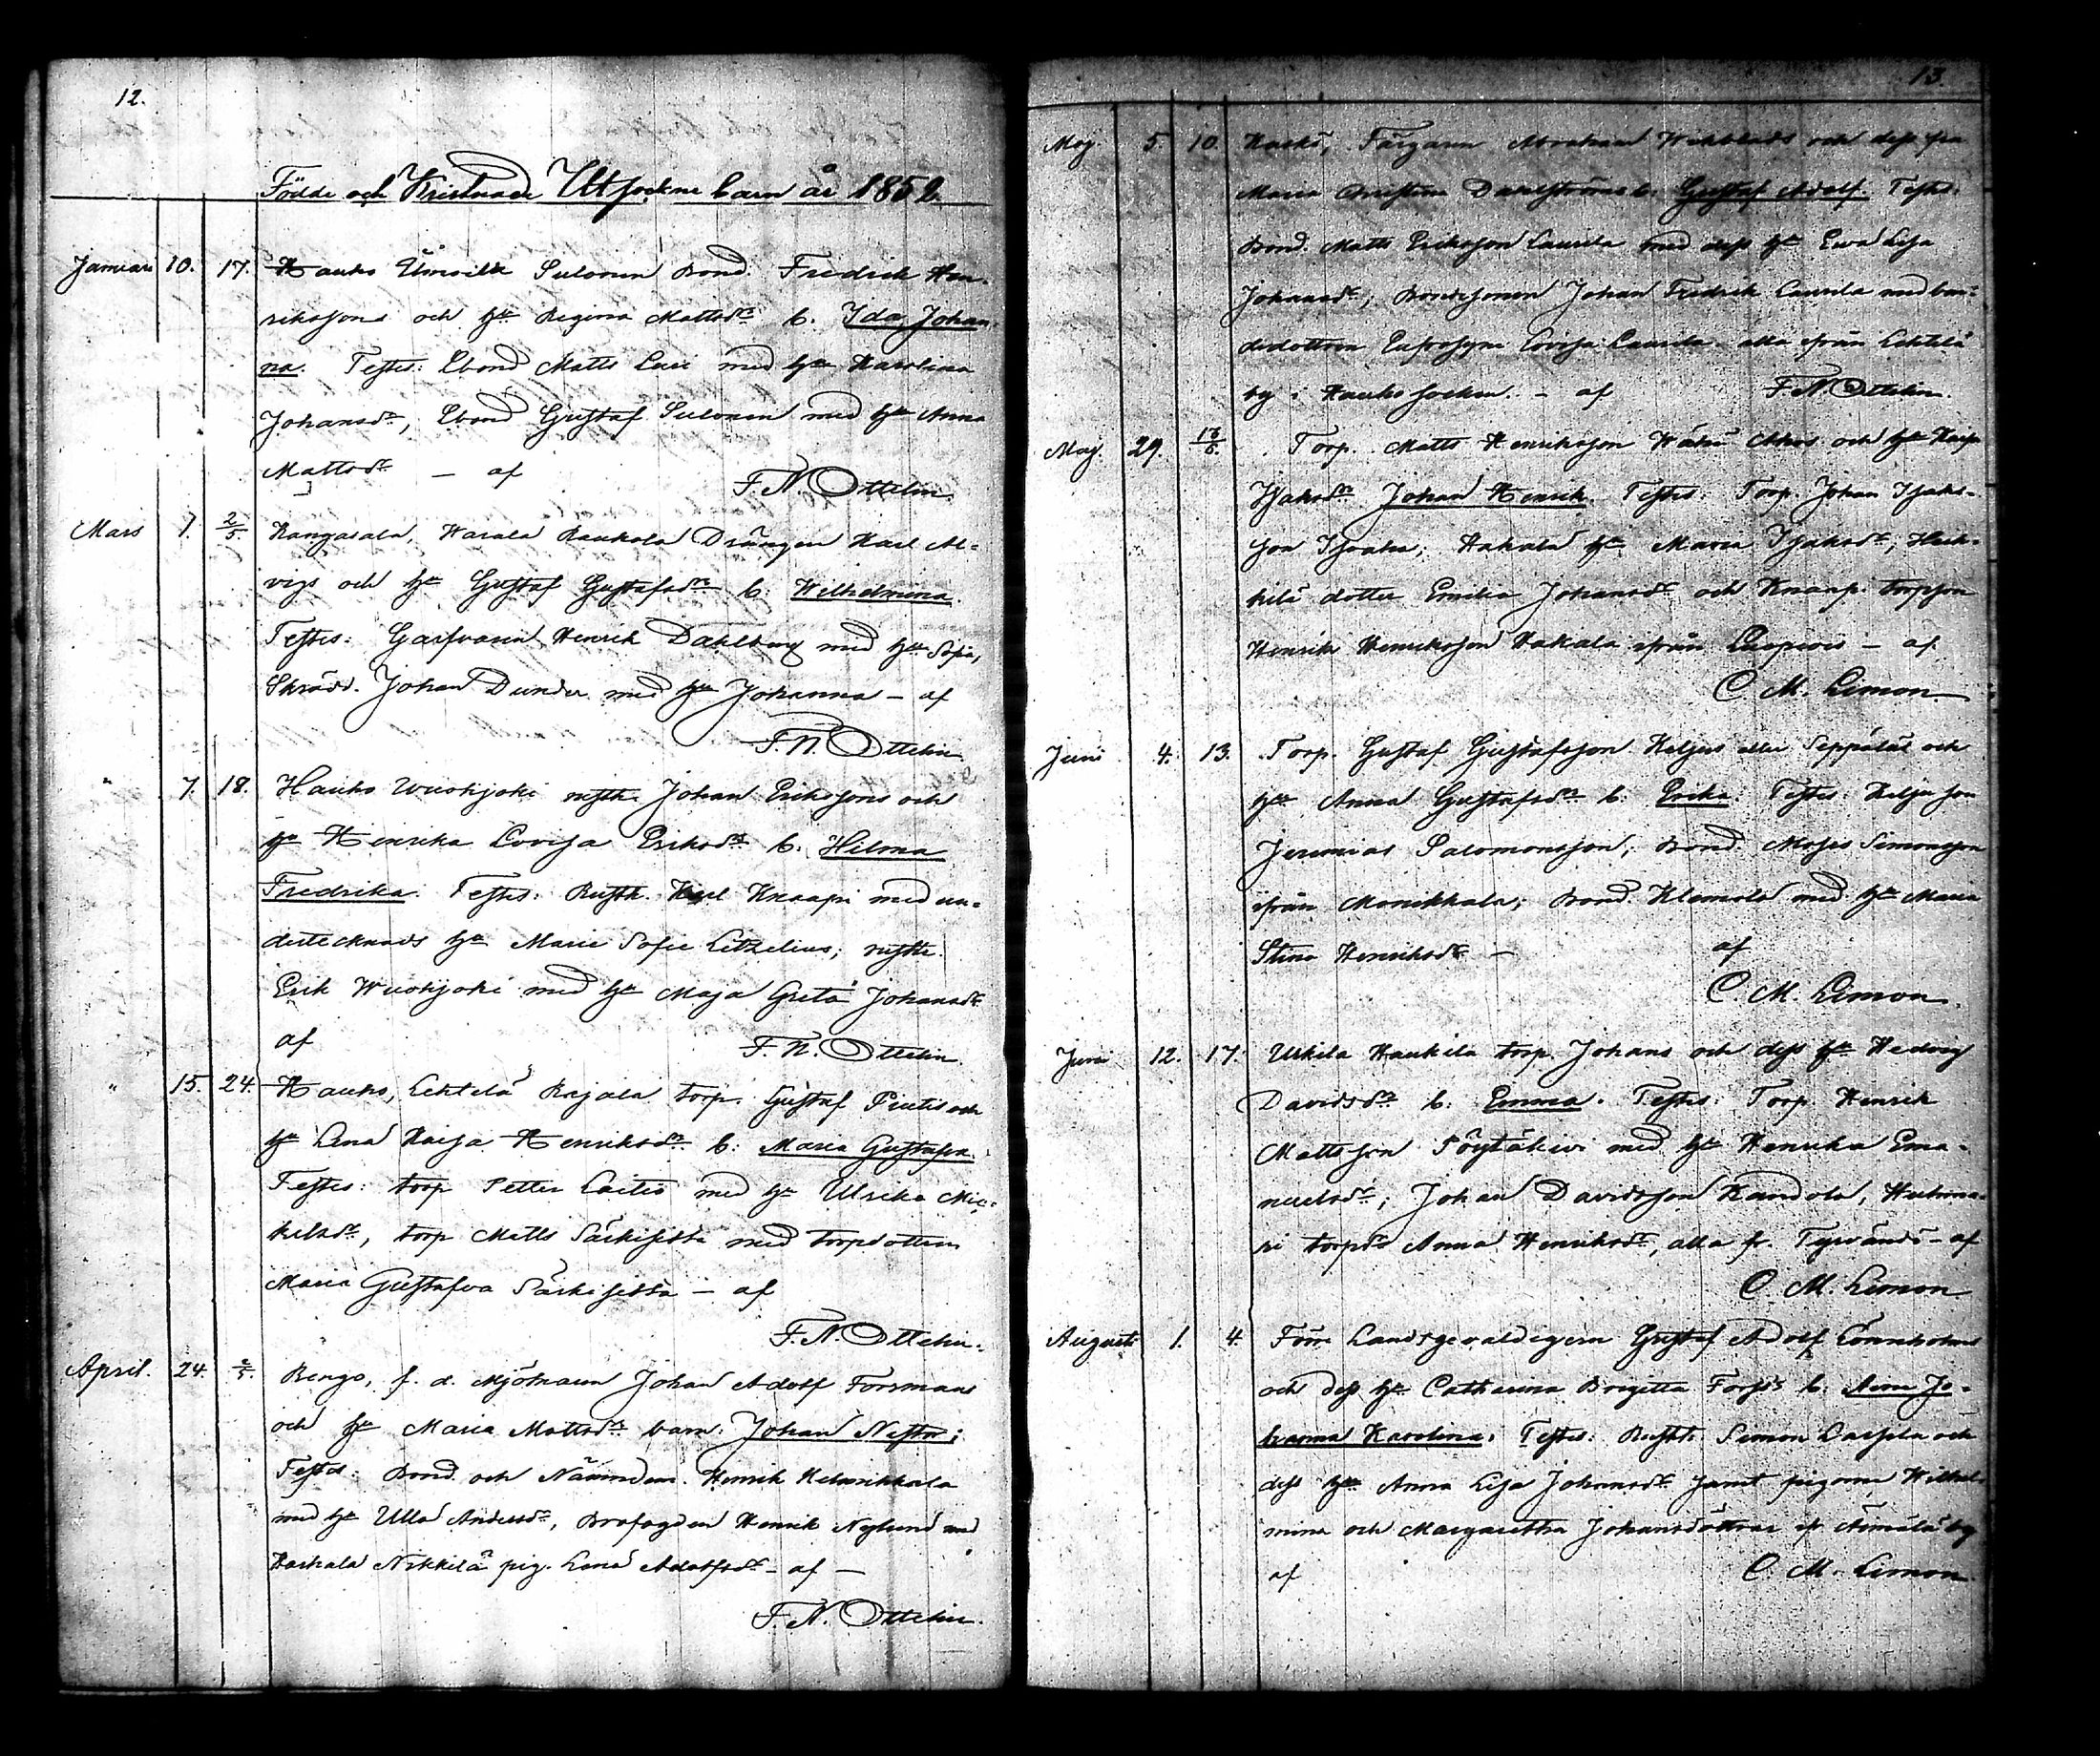 12.
Födde och Kristnade Utsockne barn år 1852.
Januari 10. 17. Hauho Sulonen Bond. Fredrik Hen-
rikssons och h:u Regina Mattsdr b. Ida Johan-
na. Testes: Bond Matts med h:u Karolina
Johansdr, Bond Gustaf Sulonen med h:u Anna
Mattsdr – af
F. N. Ottelin
Mars 1. 2/5. Kangasala, Harala Raukola Drängen Karl Al-
vigs och h:u Gustaf Gustafsdrs b. Wilhelmina.
Testes: Garfvaren Henrik Dahlberg med h:u Sofia,
Skrädd. Johan Dunder med h:u Johanna – af
F. N. Ottelin
" 7. 18. Hauho Wuohjoki rusth. Johan Erikssons och
h:u Henrika Lovisa Eriksdrs b. Hilma
Fredrika. Testes: Rusth. Karl Knaapi med un-
dertecknads h:u Marie Sofie Letzelius; rusth.
Erik Wuohjoki med h:u Maja Greta Johansdr.
af
F. N. Ottelin
" 15. 24. Hauho, Lehtelä Rajala torp. Gustaf och
h:u Lena Kaisa Henriksdrs b: Maria Gustafva.
Testes: torp Petter Laitio med h:u Ulrika Mic-
kelsdr, torp Matts Särkisilta med torpdottern
Maria Gustafva Särkisilta – af
F. N. Ottelin.
April. 24. Rengo, f. d. Mjölnaren Johan Adolf Forsmans
och h:u Maria Mattsdrs barn: Johan Nestor;
Testes: Bond. och Nämndem. Henrik
med h:u Ulla Andersdr, Brofogden Henrik Nylund med
Nikkilä pig. Lena Adolfsdr – af –
F. N. Ottelin.
13.
Maj. 5. 10. Hauho, Färgaren Abraham och dess fru
Maria Christina Dahlströms b. Gustaf Adolf. Testes:
Bond. Matts Eriksson Laurila med dess h:u Eva Lisa
Johansdr, Bondesonen Johan Fredrik Laurila med bon-
dedottren Eufrosyne Lovisa Laurila alla ifrån Lehtelä
by i Hauho socken. – af F. N. Ottelin.
Maj. 29. 13/6. Torp. Matts Henriksson och h:u Kaisa
Isaksdrs Johan Henrik. Testes: Torp. Johan Isaks-
son Hakala h:u Maria Isaksdr;
dotter Emilia Johansdr och torpson
Henrik Henriksson Hakala ifrån Luopiois – af
C. M. Limon
Juni 4. 13. Torp. Gustaf Gustafsson Keljus eller Seppäläs och
h:u Anna Gustafsdrs b. Erika. Testes: Kelju son
Jeremias Salomonsson; Bond Moses Simonsson
ifrån Monikkala; Bond. Klemola med h:u Maria
Stina Henriksdr – af
C. M. Limon.
Juni 12. 17. Urkila Haukila torp. Johans och dess h:u Hedvig
Davidsdrs b. Emma. Testes: Torp Henrik
Mattsson Pöytäkivi med h:u Henrika Ema-
nuelsdr; Johan Davidsson Kandola,
torpdr Anna Henriksdr, alla fr. Tyrvändö – af
C. M. Limon
Augusti 1. 4. Förre Landsgevaldigern Gustaf Adolf Lönnholms
och dess h:u Catharina Brigitta Forss b.
Karolina. Testes: Rusth. Simon Lassila och
dess h:u Anna Lisa Johansdr samt pigorna Wilhel-
mina och Margaretha Johansdöttrar by
af C. M. Limon